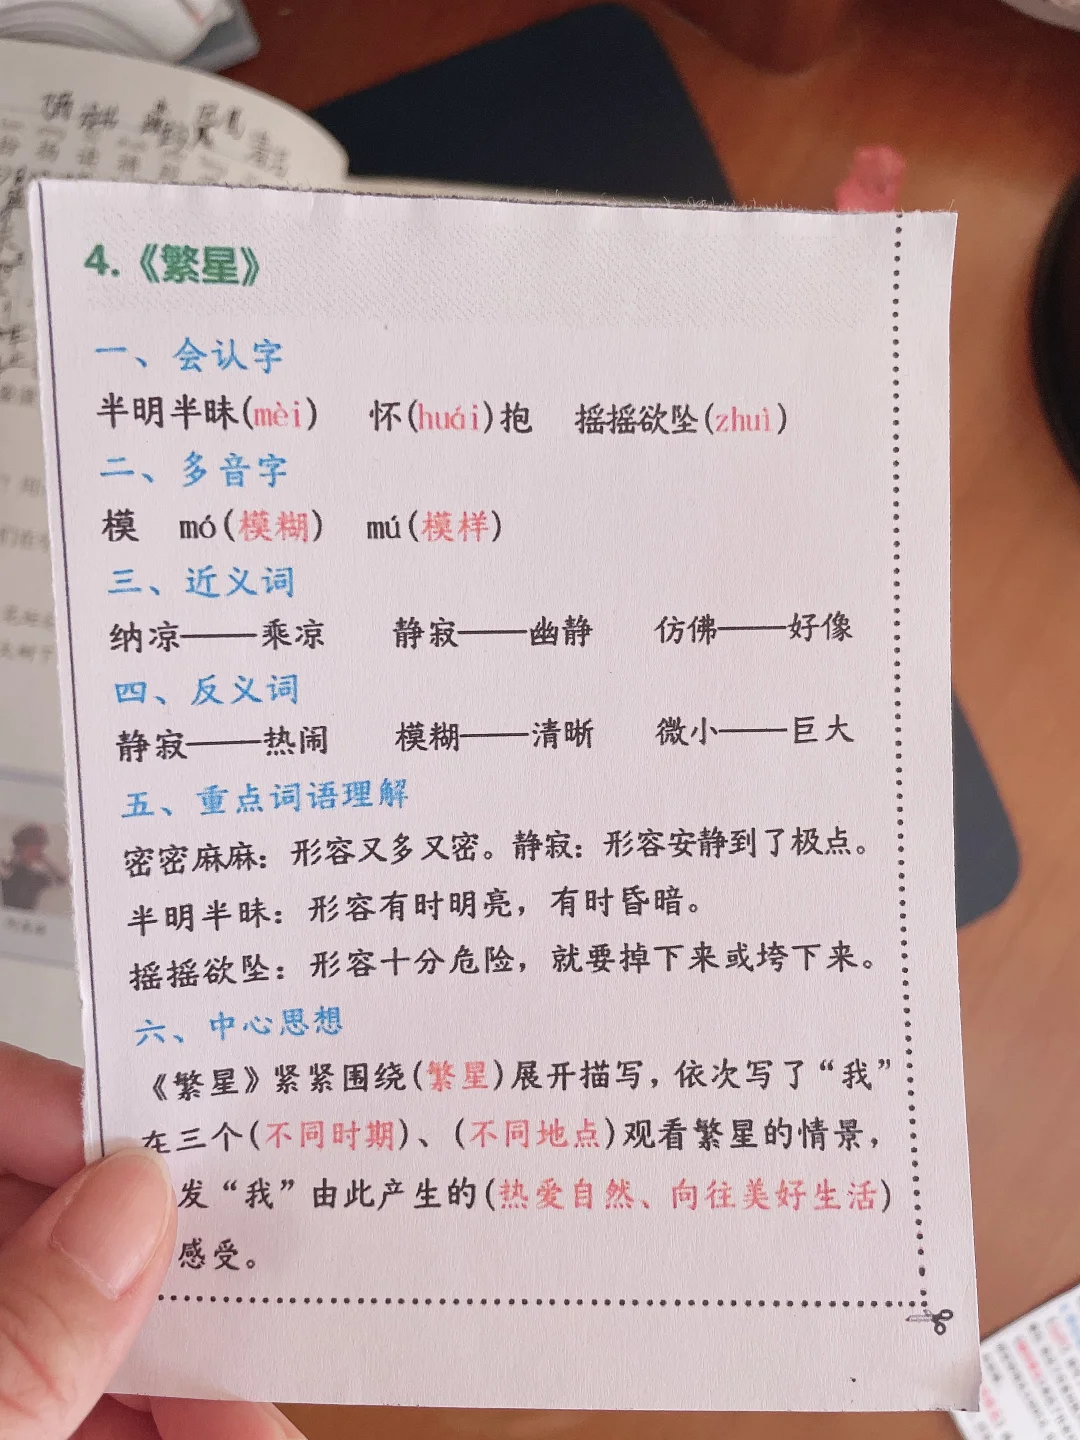 4.《繁星》
一、会认字
半明半昧(mèi) 怀(huái)抱 摇摇欲坠(zhuì)
二、多音字
模 mó(模糊) mú(模样)
三、近义词
纳凉——乘凉 静寂——幽静 仿佛——好像
四、反义词
静寂——热闹 模糊——清晰 微小——巨大
五、重点词语理解
密密麻麻：形容又多又密。静寂：形容安静到了极点。
半明半昧：形容有时明亮，有时昏暗。
摇摇欲坠：形容十分危险，就要掉下来或垮下来。
六、中心思想
《繁星》紧紧围绕(繁星)展开描写，依次写了“我”
在三个(不同时期)、(不同地点)观看繁星的情景，
发“我”由此产生的(热爱自然、向往美好生活)
感受。